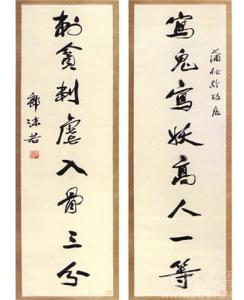 蒲松龄故居
写鬼写妖高人一等
刺贪刺虐入骨三分
郭沫若